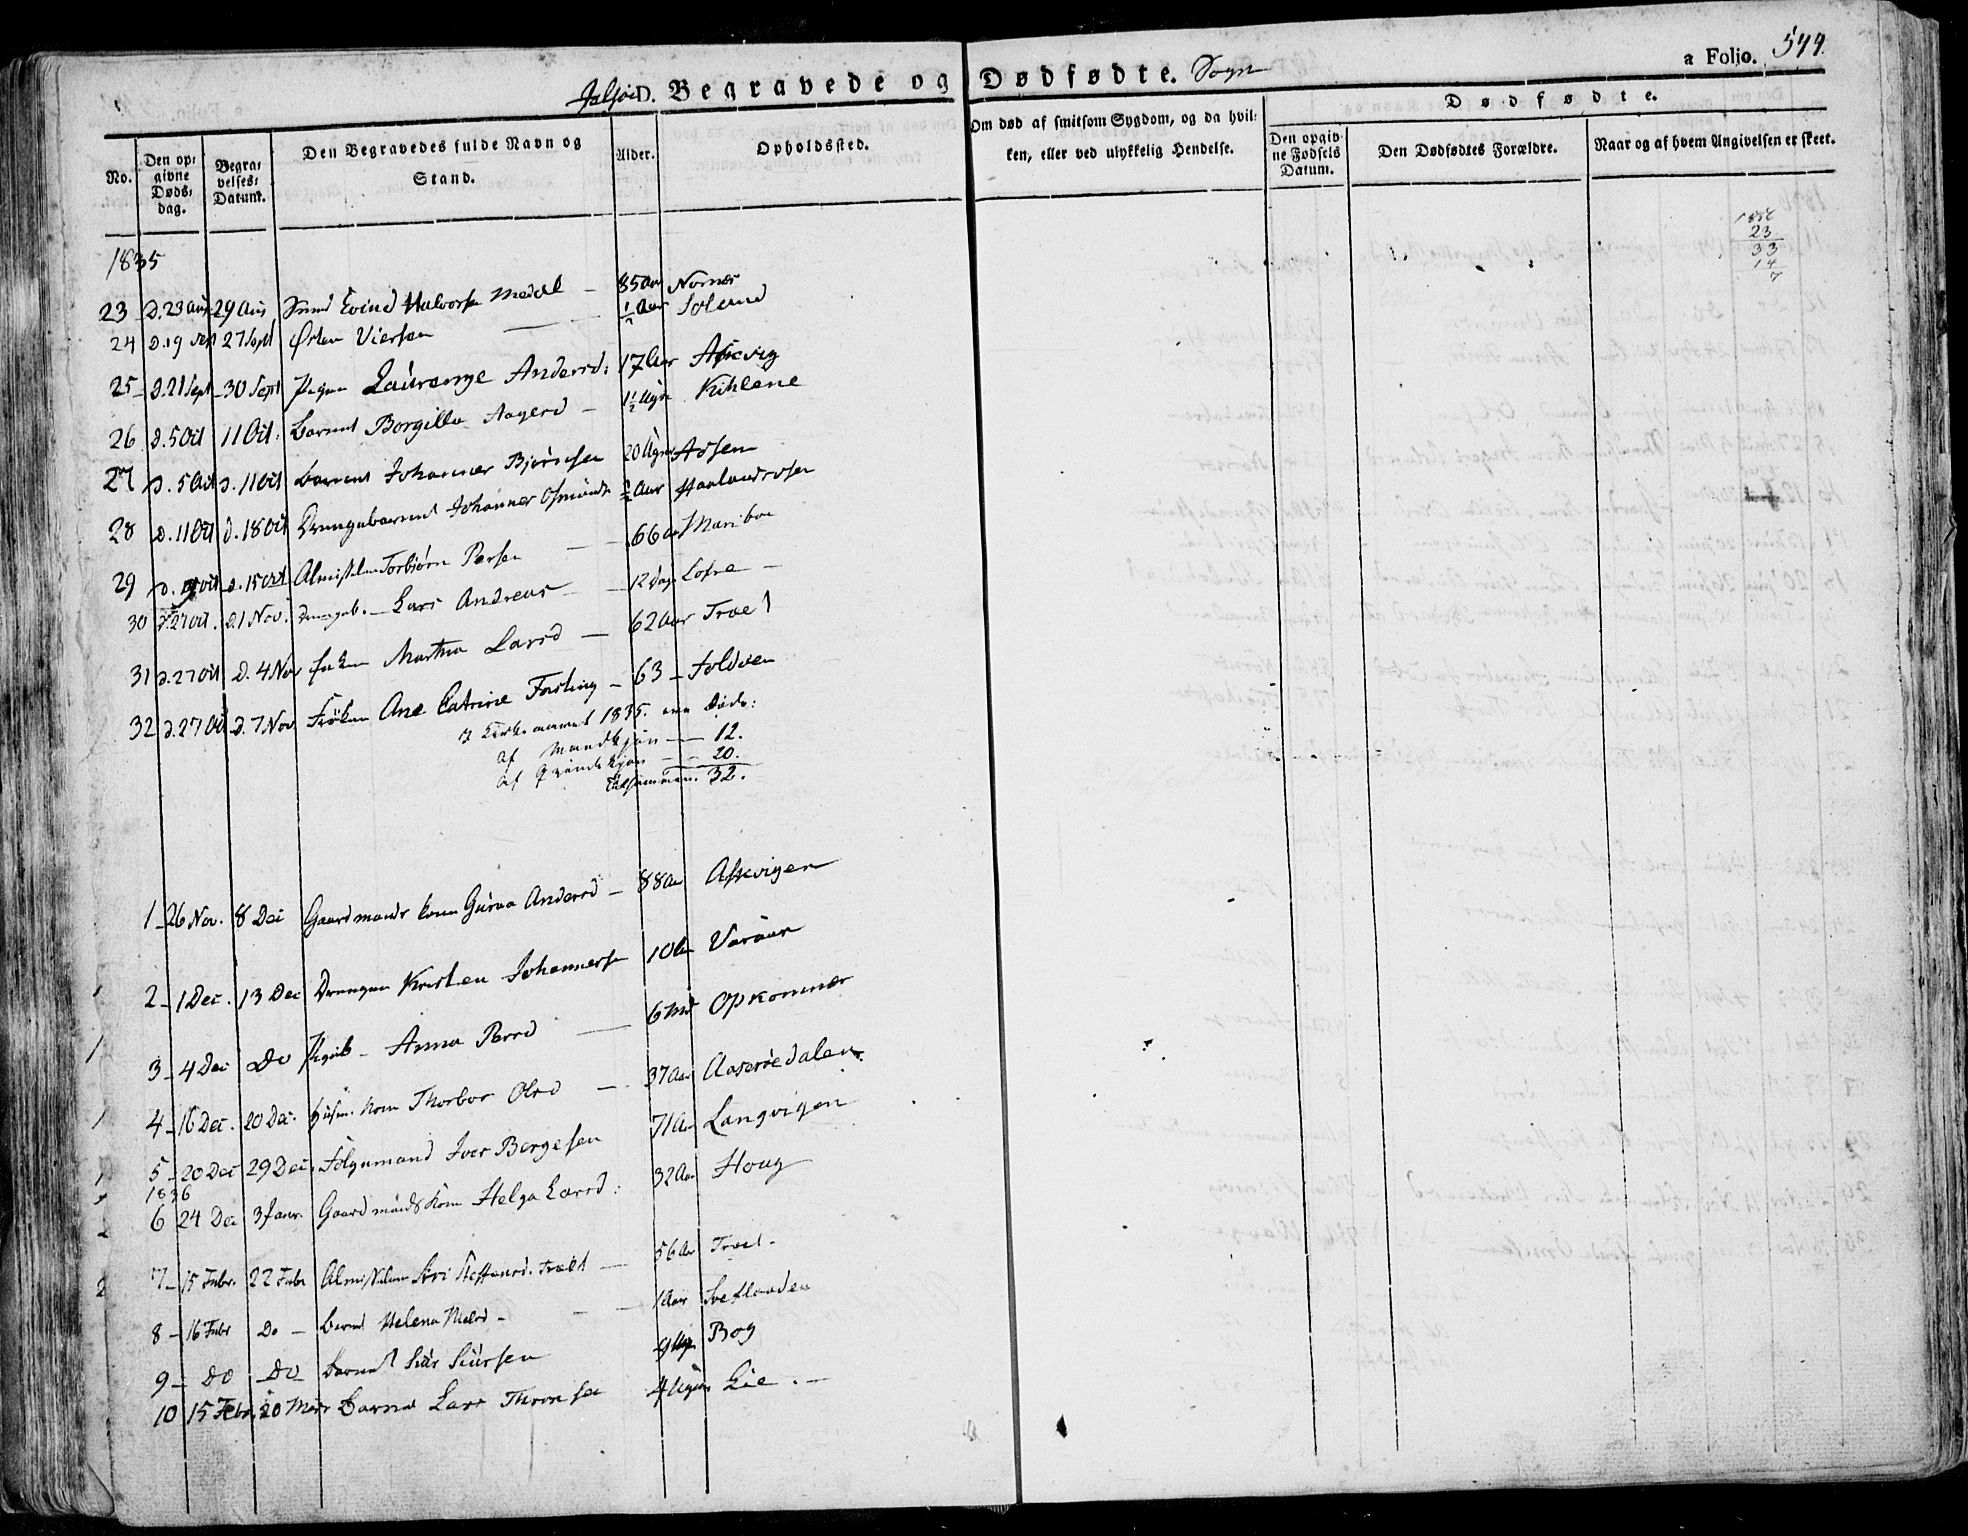 Jelsøe D. Begravede og Dødfødte. Sogn a Foljo. 544.
No. Den opgivne Dødsdag. Begravelses-Datum. Den Begravedes fulde Navn og Stand. Alder. Opholdssted. Om død af smitsom Sygdom, og da hvilken, eller ved ulykkelig Hendelse. Dødfødte. Den opgivne Fødsels Datum. Den Dødfødtes Forældre. Naar og af hvem Angivelsen er skeet.
1835
23
33
14
7
23 D. 23 Aug 29 Aug Evind Halvorsen Medal 85 Aar Nornes
24 D. 19 Sept 27 Sept Østen Viersen ½ Aar Soland
25 D. 21 Sept 30 Sept Pigen Laurenze Andersd: 17 Aar Askvig
26 d. 5 Oct 11 Oct. Barnet Borgilla Aagesd 1½ Uger Kihlene
27 d. 5 Oct d. 11 Oct Barnet Johannes Bjørnsen 20 Uger Aasen
28 d. 11 Oct d. 18 Oct Drengebarnet Johannes Osmunds ½ Aar Haalandsosen
29 d. Oct d. 15 Oct Almisselem Torbjørn Persen 66 Aar Mariboe
30 d. 27 Oct. d. 1 Nov. Drengeb. Lars Andreas 12 Dage Lofre
31 d. 27 Oct d. 4 Nov Martha Larsd 62 Aar Trae
32 d. 27 Oct d. 7 Nov Frøken Ane Catrine Forsting 63 Foldøen
I Kirkeaaret 1835. ere Døde:
af Mandkjøn 12.
af Qvindekjøn 20.
Tilsammen. 32.
1 26 Nov. 8 Dec Gaardmands kone Guroe Andersd 88 Aar Askvigen
2 1 Dec. 13 Dec Drengen Kristen Johannessen 10 Aar Voraar
3 4 Dec Do Pigeb. Anna Persd 6 Md Opkommer
4 16 Dec. 20 Dec. Husm. kone Thorbor Olsd 37 Aar Aaserøedalen
5 20 Dec 29 Dec. Følgemand Iver Børgesen 71 Aar Langvigen
1836
6 24 Dec 3 Janr. Gaardmands kone Helga Larsd: 32 Aar Houg
7 15 Febr. 22 Febr Almisselem Siri Trael 56 Aar Trael
8 16 Febr Do Barnet Helena Nielsd 1 Aar
9 Do Do Barnet Siur Siursen 9 Uger Bog
10 15 Febr 20 Mars Barnet Lars Thorsen 4 Uger Lie